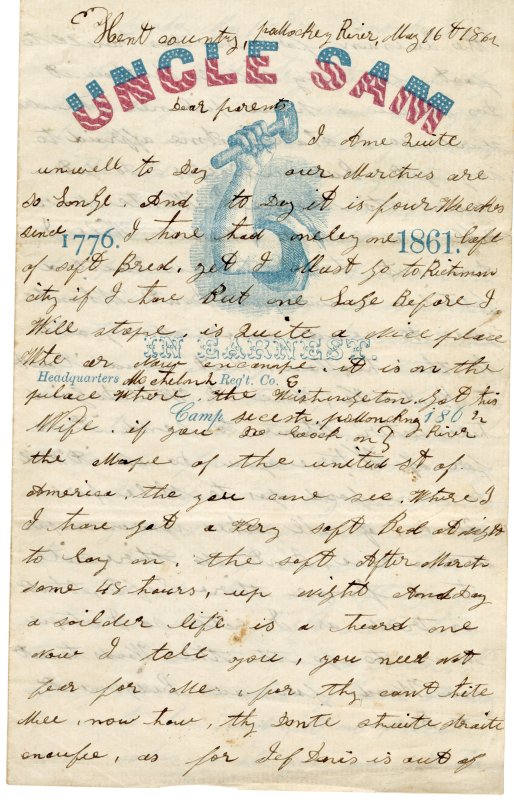 Kent country, pallockey River, May 16t 1862
UNCLE SAM
Dear parents
I Ame Quite
unwell to Day our Marches are
so Longe. And to Day it is four Weekes
since I have had oneley one Loft
1776. 1861.
of soft Bred. yet I Must go to Richmon
city if I have But one Lege Before I
Will stope. is Quite a Nice place
IN EARNEST.
Wte ar Now encampe. it is on the
Headquarters Mechelnk Reg't. Co. E
palace Where the Wishingeton Got his
Camp secesh. pallonkey 1862
River
Wife. if you Do Loock on
the Mape of the united St of
America. the you cane see. Where I
I have got a Very soft Bed at night
to lay on. the soft After March
some 48 hours, up night And Day
a soilder life is a heard one
Now I tell you, you need not
fear for Me. for thy cant hite
Mee, now how, thy Donte shuite straite
enoufe, as for Jef Davis is out of